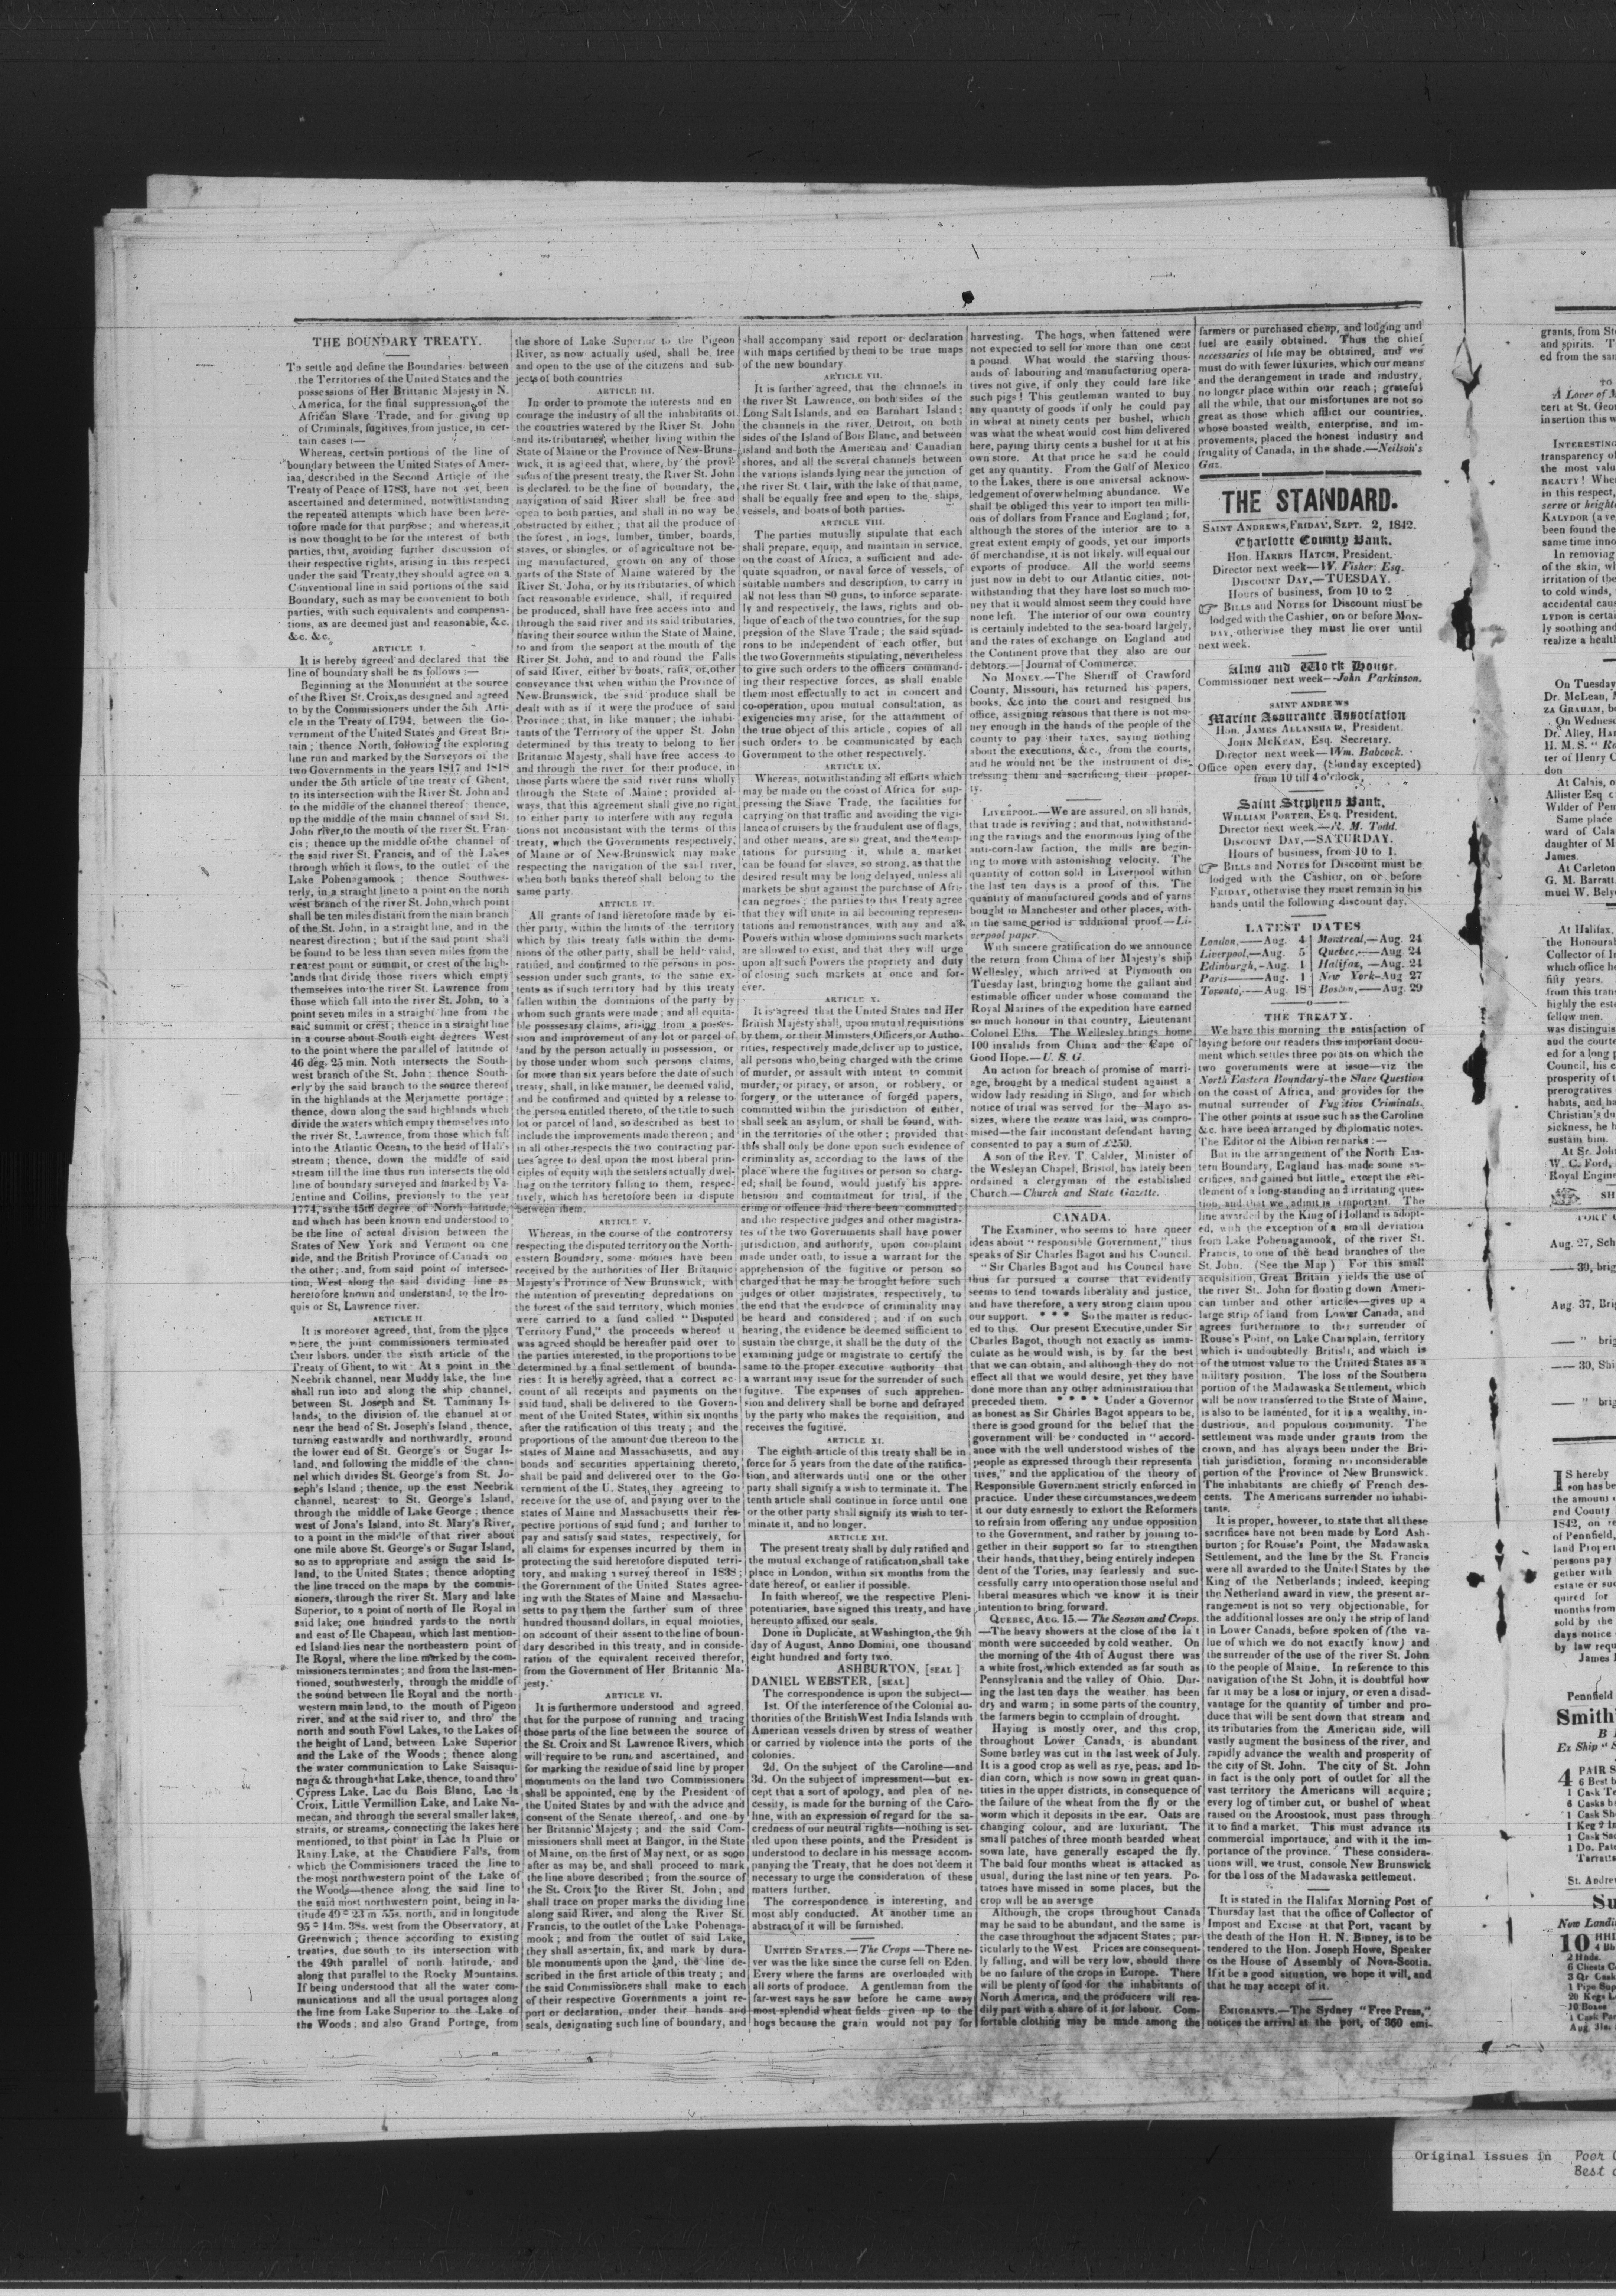 THE BOUNDARY TREATY.
To settle and define the Boundaries between
the Territories of the United States and the
possessions of Her Brittanic Majesty in N.
America, for the final suppression of the
African Slave Trade, and for giving up
of Criminals, fugitives from justice, in cer-
tain cases :—
Whereas, certain portions of the line of
boundary between the United States of Amer-
iaa, described in the Second Article of the
Treaty of Peace of 1783, have not yet been
ascertained and determined, notwithstanding
the repeated attempts which have been here-
tofore made for that purpose ; and whereas, it
is now thought to be for the interest of both
parties, that, avoiding further discussion of
their respective rights, arising in this respect
under the said Treaty, they should agree on a
Conventional line in said portions of the said
Boundary, such as may be convenient to both
parties, with such equivalents and compensa-
tions, as are deemed just and reasonable, &c.
&c. &c.
ARTICLE I.
It is hereby agreed and declared that the
line of boundary shall be as follows :—
Beginning at the Monument at the source
of the River St. Croix, as designed and agreed
to by the Commissioners under the 5th Arti-
cle in the Treaty of 1794, between the Go-
vernment of the United States and Great Bri-
tain ; thence North, following the exploring
line run and marked by the Surveyors of the
two Governments in the years 1817 and 1818
under the 5th article of the treaty of Ghent,
to its intersection with the River St. John and
to the middle of the channel thereof : thence,
up the middle of the main channel of said St.
John river, to the mouth of the river St. Fran-
cis ; thence up the middle of the channel of
the said river St. Francis, and of the Lakes
through which it flows, to the outlet of the
Lake Pohenagamook ; thence Southwes-
terly, in a straight line to a point on the north
west branch of the river St. John, which point
shall be ten miles distant from the main branch
of the St. John, in a straight line, and in the
nearest direction ; but if the said point shall
be found to be less than seven miles from the
nearest point or summit, or crest of the high-
lands that divide those rivers which empty
themselves into the river St. Lawrence from
those which fall into the river St. John, to a
point seven miles in a straight line from the
said summit or crest ; thence in a straight line
in a course about South eight degrees West
to the point where the parallel of latitude of
46 deg. 25 min. Noth intersects the South-
west branch of the St. John ; thence South-
erly by the said branch to the source thereof
in the highlands at the Merjamette portage ;
thence, down along the said highlands which
divide the waters which empty themselves into
the river St. Lawrence, from those which fall
into the Atlantic Ocean, to the head of Hall's
stream ; thence, down the middle of said
stream till the line thus run intersects the old
line of boundary surveyed and marked by Va-
lentine and Collins, previously to the year
1774, as the 45th degree of North latitude,
and which has been known end understood to
be the line of actual division between the
States of New York and Vermont on one
side, and the British Province of Canada on
the other ; and, from said point of intersec-
tion, West along the said dividing line as
heretofore known and understand, to the Iro-
quis or St, Lawrence river.
ARTICLE II
It is moreover agreed, that, from the place
where, the joint commissioners terminated
their labors, under the sixth article of the
Treaty of Ghent, to wit - At a point in the
Neebrik channel, near Muddy lake, the line
shall run into and along the ship channel,
between St. Joseph and St. Taminany Is-
lands, to the division of the channel at or
near the head of St. Joseph's Island , thence,
turning eastwardly and northwardly, around
the lower end of St. George's or Sugar Is-
land, and following the middle of the chan-
nel which divides St. George's from St. Jo-
seph's Island ; thence, up the east Neebrik
channel, nearest to St. George's Island,
through the middle of Lake George ; thence
west of Jona's Island, into St. Mary's River,
to a point in the middle of that river about
one mile above St. George's or Sugar Island,
so as to appropriate and assign the said Is-
land, to the United States ; thence adopting
the line traced on the maps by the commis-
sioners, through the river St. Mary and lake
Superior, to a point of north of Ile Royal in
said lake; one hundred yards to the north
and east of Ile Chapeau, which last mention-
ed Island lies near the northeastern point of
Ile Royal, where the line marked by the com-
missioners terminates ; and from the last-men-
tioned, southwesterly, through the middle of
the sound between Ile Royal and the north-
western main land, to the mouth of Pigeon
river, and at the said river to, and thro' the
north and south Fowl Lakes, to the Lakes of
the height of Land, between Lake Superior
and the Lake of the Woods ; thence along
the water communication to Lake Saisaqui-
naga & through that Lake, thence, to and thro'
Cypress Lake, Lac du Bois Blanc, Lac la
Croix, Little Vermillion Lake, and Lake Na-
mecan, and through the several smaller lakes,
straits, or streams, connecting the lakes here
mentioned, to that point in Lac la Pluie or
Rainy Lake, at the Chaudiere Fal's, from
which the Commisioners traced the line to
the most northwestern point of the Lake of
the Woods—thence along, the said line to
the said most northwestern point, being in la-
titude 49° 23 m 55s. north, and in longitude
95° 14m. 38s. west from the Observatory, at
Greenwich ; thence according to existing
treaties, due south to its intersection with
the 49th parallel of north latitude, and
along that parallel to the Rocky Mountains.
If being understood that all the water com-
munications and all the usual portages along
the line from Lake Superior to the Lake of
the Woods ; and also Grand Portage, from
the shore of Lake Superior to the Pigeon
River, as now actually used, shall be free
and open to the use of the citizens and sub-
jects of both countries
ARTICLE III.
In order to promote the interests and en
courage the industry of all the inhabitants of
the countries watered by the River St. John
and its tributaries, whether living within the
State of Maine or the Province of New-Bruns-
wick, it is agreed that, where, by the provi-
sions of the present treaty, the River St. John
is declared to be the line of boundary, the
navigation of said River shall be free and
open to both parties, and shall in no way be
obstructed by either ; that all the produce of
the forest, in logs, lumber, timber, boards,
staves, or shingles, or of agriculture not be-
ing manufactured, grown on any of those
parts of the State of Maine watered by the
River St. John, or by its tributaries, of which
fact reasonable evidence, shall, if required
be produced, shall have free access into and
through the said river and its said tributaries,
having their source within the State of Maine,
to and from the seaport at the mouth of the
River St. John, and to and round the Falls
of said River, either by boats, rafts, or other
conveyance that when within the Province of
New-Brunswick, the said produce shall be
dealt with as if it were the produce of said
Province ; that, in like manner ; the inhabi-
tants of the Territory of the upper St. John
determined by this treaty to belong to her
Britannic Majesty, shall have free access to
and through the river for their produce, in
those parts where the said river runs wholly
through the State of Maine ; provided al-
ways, that this agreement shall give no right
to either party to interfere with any regula
tions not inconsistent with the terms of this
treaty, which the Governments respectively,
of Maine or of New-Brunswick may make
respecting the navigation of the said river,
when both banks thereof shall belong to the
same party.
ARTICLE IV.
All grants of land heretofore made by ei-
ther party, within the limits of the territory
which by this treaty falls within the domi-
nions of the other party, shall be held valid,
ratified, and confirmed to the persons in pos-
session under such grants, to the same ex-
tents as if such territory had by this treaty
fallen within the dominions of the party by
whom such grants were made ; and all equita-
ble posssesary claims, arising from a posses-
sion and improvement of any lot or parcel of
land by the person actually in possession, or
by those under whom such persons claims,
for more than six years before the date of such
treaty, shall, in like manner, be deemed valid,
and be confirmed and quieted by a release to
the person entitled thereto, of the title to such
lot or parcel of land, so described as best to
include the improvements made thereon ; and
in all other respects the two contracting par-
ties agree to deal upon the most liberal prin-
ciples of equity with the settlers actually dwel-
ling on the territory falling to them, respec-
tively, which has heretofore been in dispute
between them.
ARTICLE V.
Whereas, in the course of the controversy
respecting the disputed territory on the North-
eastern Boundary, some monies have been
received by the authorities of Her Britannic
Majesty's Province of New Brunswick, with
the intention of preventing depredations on
the forest of the said territory, which monies
were carried to a fund called " Disputed
Territory Fund," the proceeds whereof it
was agreed should be hereafter paid over to
the parties interested, in the proportions to be
determined by a final settlement of bounda-
ries : It is hereby agreed, that a correct ac
count of all receipts and payments on the
said fund, shall be delivered to the Govern-
ment of the United States, within six months
after the ratification of this treaty ; and the
proportions of the amount due thereon to the
states of Maine and Massachusetts, and any
bonds and securities appertaining thereto,
shall be paid and delivered over to the Go-
vernment of the U. States, they agreeing to
receive for the use of, and paying over to the
states of Maine and Massachusetts their res-
pective portions of said fund ; and further to
pay and satisfy said states, respectively, for
all claims for expenses incurred by them in
protecting the said heretofore disputed terri-
tory, and making a survey thereof in 1838 ;
the Government of the United States agree-
ing with the States of Maine and Massachu-
setts to pay them the further sum of three
hundred thousand dollars, in equal moieties,
on account of their assent to the line of boun-
dary described in this treaty, and in conside-
ration of the equivalent received therefor,
from the Government of Her Britannic Ma-
jesty.
ARTICLE VI.
It is furthermore understood and agreed,
that for the purpose of running and tracing
those parts of the line between the source of
the St. Croix and St Lawrence Rivers, which
will require to be runs and ascertained, and
for marking the residue of said line by proper
monuments on the land two Commissioners
shall be appointed, one by the President of
the United States by and with the advice and
consent of the Senate thereof, and one by
her Britannic Majesty ; and the said Com-
missioners shall meet at Bangor, in the State
of Maine, on the first of May next, or as soon
after as may be, and shall proceed to mark
the line above described ; from the source of
the St. Croix to the River St. John ; and
shall trace on proper marks the dividing line
along said River, and along the River St.
Francis, to the outlet of the Lake Pohenaga-
mook ; and from the outlet of said Lake,
they shall ascertain, fix, and mark by dura-
ble monuments upon the land, the line de-
scribed in the first article of this treaty ; and
the said Commissioners shall make to each
of their respective Governments a joint re-
port or declaration, under their hands and
seals, designating such line of boundary, and
shall accompany said report or declaration
with maps certified by them to be true maps
of the new boundary.
ARTICLE VII.
It is further agreed, that the channels in
the river St Lawrence, on both sides of the
Long Salt Islands, and on Barnhart Island ;
the channels in the river, Detroit, on both
sides of the Island of Bois Blanc, and between
island and both the American and Canadian
shores, and all the several channels between
the various islands lying near the junction of
the river St. Clair, with the lake of that name,
shall be equally free and open to the ships,
vessels, and boats of both parties.
ARTICLE VIII.
The parties mutually stipulate that each
shall prepare, equip, and maintain in service,
on the coast of Africa, a sufficient and ade-
quate squadron, or naval force of vessels, of
suitable numbers and description, to carry in
all not less than 80 guns, to inforce separate-
ly and respectively, the laws, rights and ob-
lique of each of the two countries, for the sup
pression of the Slave Trade ; the said squad-
rons to be independent of each other, but
the two Governments stipulating, nevertheless
to give such orders to the officers command-
ing their respective forces, as shall enable
them most effectually to act in concert and
co-operation, upon mutual consultation, as
exigencies may arise, for the attainment of
the true object of this article, copies of all
such orders to be communicated by each
Government to the other respectively.
ARTICLE IX.
Whereas, notwithstanding all efforts which
may be made on the coast of Africa for sup-
pressing the Slave Trade, the facilities for
carrying on that traffic and avoiding the vigi-
lance of cruisers by the fraudulent use of flags,
and other means, are so great, and the temp-
tations for pursuing it, while a market
can be found for slaves, so strong, as that the
desired result may be long delayed, unless all
markets be shut against the purchase of Afri-
can negroes ; the parties to this Treaty agree
that they will unite in all becoming represen-
tations and remonstrances, with any and all
Powers within whose dominions such markets
are allowed to exist, and that they will urge
upon all such Powers the propriety and duty
of closing such markets at once and for-
ever.
ARTICLE X.
It is agreed that the United States and Her
British Majesty shall, upon mutual requisitions
by them, or their Ministers, Officers, or Autho-
rities, respectively made, deliver up to justice,
all persons who, being charged with the crime
of murder, or assault with intent to commit
murder, or piracy, or arson, or robbery, or
forgery, or the utterance of forged papers,
committed within the jurisdiction of either,
shall seek an asylum, or shall be found, with-
in the territories of the other ; provided that
this shall only be done upon such evidence of
criminality as, according to the laws of the
place where the fugitives or person so charg-
ed, shall be found, would justify his appre-
hension and commitment for trial, if the
crime or offence had there been committed ;
and the respective judges and other magistra-
tes of the two Governments shall have power
jurisdiction, and authority, upon complaint
made under oath, to issue a warrant for the
apprehension of the fugitive or person so
charged that he may be brought before such
judges or other majistrates, respectively, to
the end that the evidence of criminality may
be heard and considered ; and if on such
hearing, the evidence be deemed sufficient to
sustain the charge, it shall be the duty of the
examining judge or magistrate to certify the
same to the proper executive authority that
a warrant may issue for the surrender of such
fugitive. The expenses of such apprehen-
sion and delivery shall be borne and defrayed
by the party who makes the requisition, and
receives the fugitive.
ARTICLE XI.
The eighth article of this treaty shall be in
force for 5 years from the date of the ratifica-
tion, and afterwards until one or the other
party shall signify a wish to terminate it. The
tenth article shall continue in force until one
or the other party shall signify its wish to ter-
minate it, and no longer.
ARTICLE XII.
The present treaty shall by duly ratified and
the mutual exchange of ratification, shall take
place in London, within six months from the
date hereof, or earlier if possible.
In faith whereof, we the respective Pleni-
potentiaries, have signed this treaty, and have
hereunto affixed our seals.
Done in Duplicate, at Washington, the 9th
day of August, Anno Domini, one thousand
eight hundred and forty two.
ASHBURTON, [SEAL ]
DANIEL WEBSTER, [SEAL]
The correspondence is upon the subject—
1st. Of the interference of the Colonial au-
thorities of the British West India Islands with
American vessels driven by stress of weather
or carried by violence into the ports of the
colonies.
2d. On the subject of the Caroline—and
3d. On the subject of impressment—but ex-
cept that a sort of apology, and plea of ne-
cessity, is made for the burning of the Caro-
line, with an expression of regard for the sa-
credness of our neutral rights—nothing is set-
tled upon these points, and the President is
understood to declare in his message accom-
panying the Treaty, that he does not deem it
necessary to urge the consideration of these
matters further.
The correspondence is interesting, and
most ably conducted. At another time an
abstract of it will be furnished.
UNITED STATES.—The Crops —There ne-
ver was the like since the curse fell on Eden.
Every where the farms are overloaded with
all sorts of produce. A gentleman from the
far-west says he saw before he came away
most splendid wheat fields given up to the
hogs because the grain would not pay for
harvesting. The hogs, when fattened were
not expected to sell for more than one cent
a pound. What would the starving thous-
ands of labouring and manufacturing opera-
tives not give, if only they could fare like
such pigs ! This gentleman wanted to buy
any quantity of goods if only he could pay
in wheat at ninety cents per bushel, which
was what the wheat would cost him delivered
here, paying thirty cents a bushel for it at his
own store. At that price he said he could
get any quantity. From the Gulf of Mexico
to the Lakes, there is one universal acknow-
ledgement of overwhelming abundance. We
shall be obliged this year to import ten milli-
ons of dollars from France and England ; for,
although the stores of the interior are to a
great extent empty of goods, yet our imports
of merchandise, it is not likely, will equal our
exports of produce. All the world seems
just now in debt to our Atlantic cities, not-
withstanding that they have lost so much mo-
ney that it would almost seem they could have
none left. The interior of our own country
is certainly indebted to the sea-board largely,
and the rates of exchange on England and
the Continent prove that they also are our
debtors.—[Journal of Commerce.
No MONEY.—The Sheriff of Crawford
County, Missouri, has returned his papers,
books, &c into the court and resigned his
office, assigning reasons that there is not mo-
ney enough in the hands of the people of the
county to pay their taxes, saying nothing
about the executions, &c., from the courts,
and he would not be the instrument of dis-
tressing them and sacrificing their proper-
ty.
LIVERPOOL.—We are assured, on all hands,
that trade is reviving ; and that, notwithstand-
ing the ravings and the enormous lying of the
anti-corn-law faction, the mills are begin-
ing to move with astonishing velocity. The
quantity of cotton sold in Liverpool within
the last ten days is a proof of this. The
quantity of manufactured goods and of yarns
bought in Manchester and other places, with-
in the same period is additional proof.—Li-
verpool paper
With sincere gratification do we announce
the return from China of her Majesty's ship
Wellesley, which arrived at Plymouth on
Tuesday last, bringing home the gallant and
estimable officer under whose command the
Royal Marines of the expedition have earned
so much honour in that country, Lieutenant
Colonel Ellis. The Wellesley brings home
100 invalids from China and the Cape of
Good Hope.—U. S. G.
An action for breach of promise of marri-
age, brought by a medical student against a
widow lady residing in Sligo, and for which
notice of trial was served for the Mayo as-
sizes, where the venue was laid, was compro-
mised—the fair inconstant defendant having
consented to pay a sum of £250.
A son of the Rev. T. Calder, Minister of
the Wesleyan Chapel, Bristol, has lately been
ordained a clergyman of the established
Church.—Church and State Gazette.
CANADA.
The Examiner, who seems to have queer
ideas about " responsible Government," thus
speaks of Sir Charles Bagot and his Council.
" Sir Charles Bagot and his Council have
thus far pursued a course that evidently
seems to tend towards liberality and justice,
and have therefore, a very strong claim upon
our support. * * * So the matter is reduc-
ed to this. Our present Executive, under Sir
Charles Bagot, though not exactly as imma-
culate as he would wish, is by far the best
that we can obtain, and although they do not
effect all that we would desire, yet they have
done more than any other administration that
preceded them. * * * * Under a Governor
as honest as Sir Charles Bagot appears to be,
there is good ground for the belief that the
government will be conducted in " accord-
ance with the well understood wishes of the
people as expressed through their representa
tives," and the application of the theory of
Responsible Government strictly enforced in
practice. Under these circumstances, we deem
it our duty earnestly to exhort the Reformers
to refrain from offering any undue opposition
to the Government, and rather by joining to-
gether in their support so far to strengthen
their hands, that they, being entirely indepen
dent of the Tories, may fearlessly and suc-
cessfully carry into operation those useful and
liberal measures which we know it is their
intention to bring forward.
QUEBEC, AUG. 15.—The Season and Crops.
—The heavy showers at the close of the last
month were succeeded by cold weather. On
the morning of the 4th of August there was
a white frost, which extended as far south as
Pennsylvania and the valley of Ohio. Dur-
ing the last ten days the weather has been
dry and warm ; in some parts of the country,
the farmers begin to complain of drought.
Haying is mostly over, and this crop,
throughout Lower Canada, is abundant
Some barley was cut in the last week of July.
It is a good crop as well as rye, peas, and In-
dian corn, which is now sown in great quan-
tities in the upper districts, in consequence of
the failure of the wheat from the fly or the
worm which it deposits in the ear. Oats are
changing colour, and are luxuriant. The
small patches of three month bearded wheat
sown late, have generally escaped the fly.
The bald four months wheat is attacked as
usual, during the last nine or ten years. Po-
tatoes have missed in some places, but the
crop will be an average
Although, the crops throughout Canada
may be said to be abundant, and the same is
the case throughout the adjacent States ; par-
ticularly to the West Prices are consequent-
ly falling, and will be very low, should there
be no failure of the crops in Europe. There
will be plenty of food for the inhabitants of
North America, and the producers will rea-
dily part with a share of it for labour. Com-
fortable clothing may be made among the
farmers or purchased cheap, and lodging and
fuel are easily obtained. Thus the chief
necessaries of life may be obtained, and we
must do with fewer luxuries, which our means
and the derangement in trade and industry,
no longer place within our reach ; grateful
all the while, that our misfortunes are not so
great as those which afflict our countries,
whose boasted wealth, enterprise, and im-
provements, placed the honest industry and
frugality of Canada, in the shade.—Neilson's
Gaz.
THE STANDARD.
SAINT ANDREWS, FRIDAY, SEPT. 2, 1842.
Charlotte County Bank.
Hon. HARRIS HATCH, President.
Director next week—W. Fisher: Esq.
DISCOUNT DAY,—TUESDAY.
Hours of business, from 10 to 2
BILLS and NOTES for Discount must be
lodged with the Cashier, on or before MON-
DAY, otherwise they must lie over until
next week.
Alms and Work House.
Commissioner next week--John Parkinson.
SAINT ANDREWS
Marine Assurance Association
Hon. JAMES ALLANSHAW, President.
JOHN MCKEAN, Esq. Secretary.
Director next week—Wm. Babcock.
Office open every day, (Sunday excepted)
from 10 till 4 o'clock.
Saint Stephens Bank.
WILLIAM PORTER, Esq. President.
Director next week.—R. M. Todd.
DISCOUNT DAY,—SATURDAY.
Hours of business, from 10 to 1.
BILLS and NOTES for Discount must be
lodged with the Cashier, on or before
FRIDAY, otherwise they must remain in his
hands until the following discount day.
LATEST DATES
London,——Aug. 4 | Montreal,—Aug. 24
Liverpool,—Aug. 5 | Quebec,——Aug. 24
Edinburgh,-Aug. 1 | Halifax,—Aug. 24
Paris———Aug. 1 | New York–Aug 27
Toronto,—-Aug. 18 | Boston,——Aug. 29
THE TREATY.
We have this morning the satisfaction of
laying before our readers this important docu-
ment which settles three points on which the
two governments were at issue—viz the
North Eastern Boundary-the Slave Question
on the coast of Africa, and provides for the
mutual surrender of Fugitive Criminals.
The other points at issue such as the Caroline
&c. have been arranged by diplomatic notes.
The Editor of the Albion remarks :—
But in the arrangement of the North Eas-
tern Boundary, England has made some sa-
crifices, and gained but little, except the set-
tlement of a long-standing and irritating ques-
tion, and that we admit is important. The
line awarded by the King of Holland is adopt-
ed, with the exception of a small deviation
from Lake Pohenagamook, of the river St.
Francis, to one of the head branches of the
St. John. (See the Map ) For this small
acquisition, Great Britain yields the use of
the river St. John for floating down Ameri-
can timber and other articles—gives up a
large strip of land from Lower Canada, and
agrees furthermore to the surrender of
Rouse's Point, on Lake Champlain, territory
which is undoubtedly British, and which is
of the utmost value to the United States as a
military position. The loss of the Southern
portion of the Madawaska Settlement, which
will be now transferred to the State of Maine,
is also to be lamented, for it is a wealthy, in-
dustrious, and populous community. The
settlement was made under grants from the
crown, and has always been under the Bri-
tish jurisdiction, forming no inconsiderable
portion of the Province of New Brunswick.
The inhabitants are chiefly of French des-
cents. The Americans surrender no inhabi-
tants.
It is proper, however, to state that all these
sacrifices have not been made by Lord Ash-
burton ; for Rouse's Point, the Madawaska
Settlement, and the line by the St. Francis
were all awarded to the United States by the
King of the Netherlands ; indeed, keeping
the Netherland award in view, the present ar-
rangement is not so very objectionable, for
the additional losses are only the strip of land
in Lower Canada, before spoken of (the va-
lue of which we do not exactly know) and
the surrender of the use of the river St. John
to the people of Maine. In reference to this
navigation of the St John, it is doubtful how
far it may be a loss or injury, or even a disad-
vantage for the quantity of timber and pro-
duce that will be sent down that stream and
its tributaries from the American side, will
vastly augment the business of the river, and
rapidly advance the wealth and prosperity of
the city of St. John. The city of St. John
in fact is the only port of outlet for all the
vast territory the Americans will acquire ;
every log of timber cut, or bushel of wheat
raised on the Aroostook, must pass through
it to find a market. This must advance its
commercial importance, and with it the im-
portance of the province. These considera-
tions will, we trust, console New Brunswick
for the loss of the Madawaska settlement.
It is stated in the Halifax Morning Post of
Thursday last that the office of Collector of
Impost and Excise at that Port, vacant by
the death of the Hon H. N. Binney, is to be
tendered to the Hon. Joseph Howe, Speaker
os the House of Assembly of Nova-Scotia.
If it be a good situation, we hope it will, and
that he may accept of it.
EMIGRANTS.—The Sydney "Free Press,"
notices the arrival at the port, of 360 emi-
grants, from
and spirits.
ed from the
TO
A Lover of
cert at St.
insertion this
INTERESTING
transparency
the most
BEAUTY !
in this respect,
serve or
KALYDOR
been found the
same time
In removing
of the skin,
irritation of the
to cold winds,
accidental
LYDON is
ly soothing and
realize a
On Tuesday
Dr. McLean,
ZA GRAHAM,
On
Dr. Alley,
H. M. S. "
ter of Henry
don
At Calais,
Allister Esq
Wilder of
Same place
ward of
daughter of
James.
At Carleton
G. M. Barratt
muel W.
At Halifax,
the
Collector of
which office
fifty years.
from this
highly the
fellow men.
was
and the
ed for a long
Council, his
prosperity of
prerogatives
habits, and
Christian's
sickness, he
sustain him.
At St.
W. C. Ford,
Royal
Aug. 27,
— 30, brig
Aug. 37,
— " brig
— 30,
— " brig
IS hereby
son has
the amount
and County
1842, on
of Pennfield,
land
persons pay
gether with
estate or
quired for
months from
sold by the
days notice
by law
James
Pennfield
Smith
Ex Ship "
4 PAIR
6 Best
1 Cask
6 Casks
1 Cask
1 Keg
1 Cask
1 Do.
St.
Now
10
2 Hhds.
6 Chests
3 Qr
1 Pipe
20 Kegs
10 Boxes
1 Cask
Aug. 31
Original issues in Poor
Best